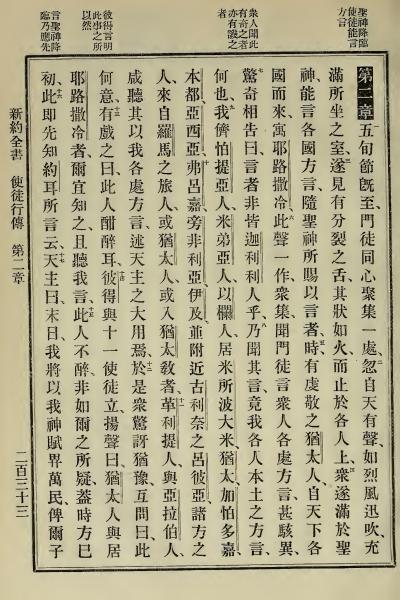 聖神降臨
使徒能言
方言
衆人聞此
有奇之者
亦有譏之
者
彼得言明
此事之所
以然
言聖神降
臨乃應先
第二章 一五旬節旣至、門徒同心聚集一處、二忽自天有聲、如烈風迅吹、充
滿所坐之室、三遂見有分裂之舌、其狀如火、而止於各人上、四衆遂滿於聖
神、能言各國方言、隨聖神所賜以言者、五時有虔敬之猶太人、自天下各
國而來、寓耶路撒冷、六此聲一作、衆集、聞門徒言衆人各處方言、甚駭異、
七驚奇相告曰、言者非皆迦利利人乎、八乃聞其言、竟我各人本土之方言、
何也、九我儕怕提亞人、米弟亞人、以攔人、居米所波大米、猶太、加怕多嘉、
本都、亞西亞、十弗呂嘉、旁非利亞、伊及、並附近古利奈之呂彼亞諸方之
人、來自羅馬之旅人、或猶太人、或入猶太敎者、十一革利提人、與亞拉伯人、
咸聽其以我各處方言、述天主之大用焉、十二於是衆驚訝猶豫、互問曰、此
何意、十三有戲之曰、此人酣醉耳、十四彼得與十一使徒立、揚聲曰、猶太人與居
耶路撒冷者、爾宜知之、且聽我言、十五此人不醉、非如爾之所疑、蓋時方巳
初、十六此卽先知約耳所言云、十七天主曰、末日、我將以我神賦畀萬民、俾爾子
新約全書 使徒行傳 第二章 二百三十三